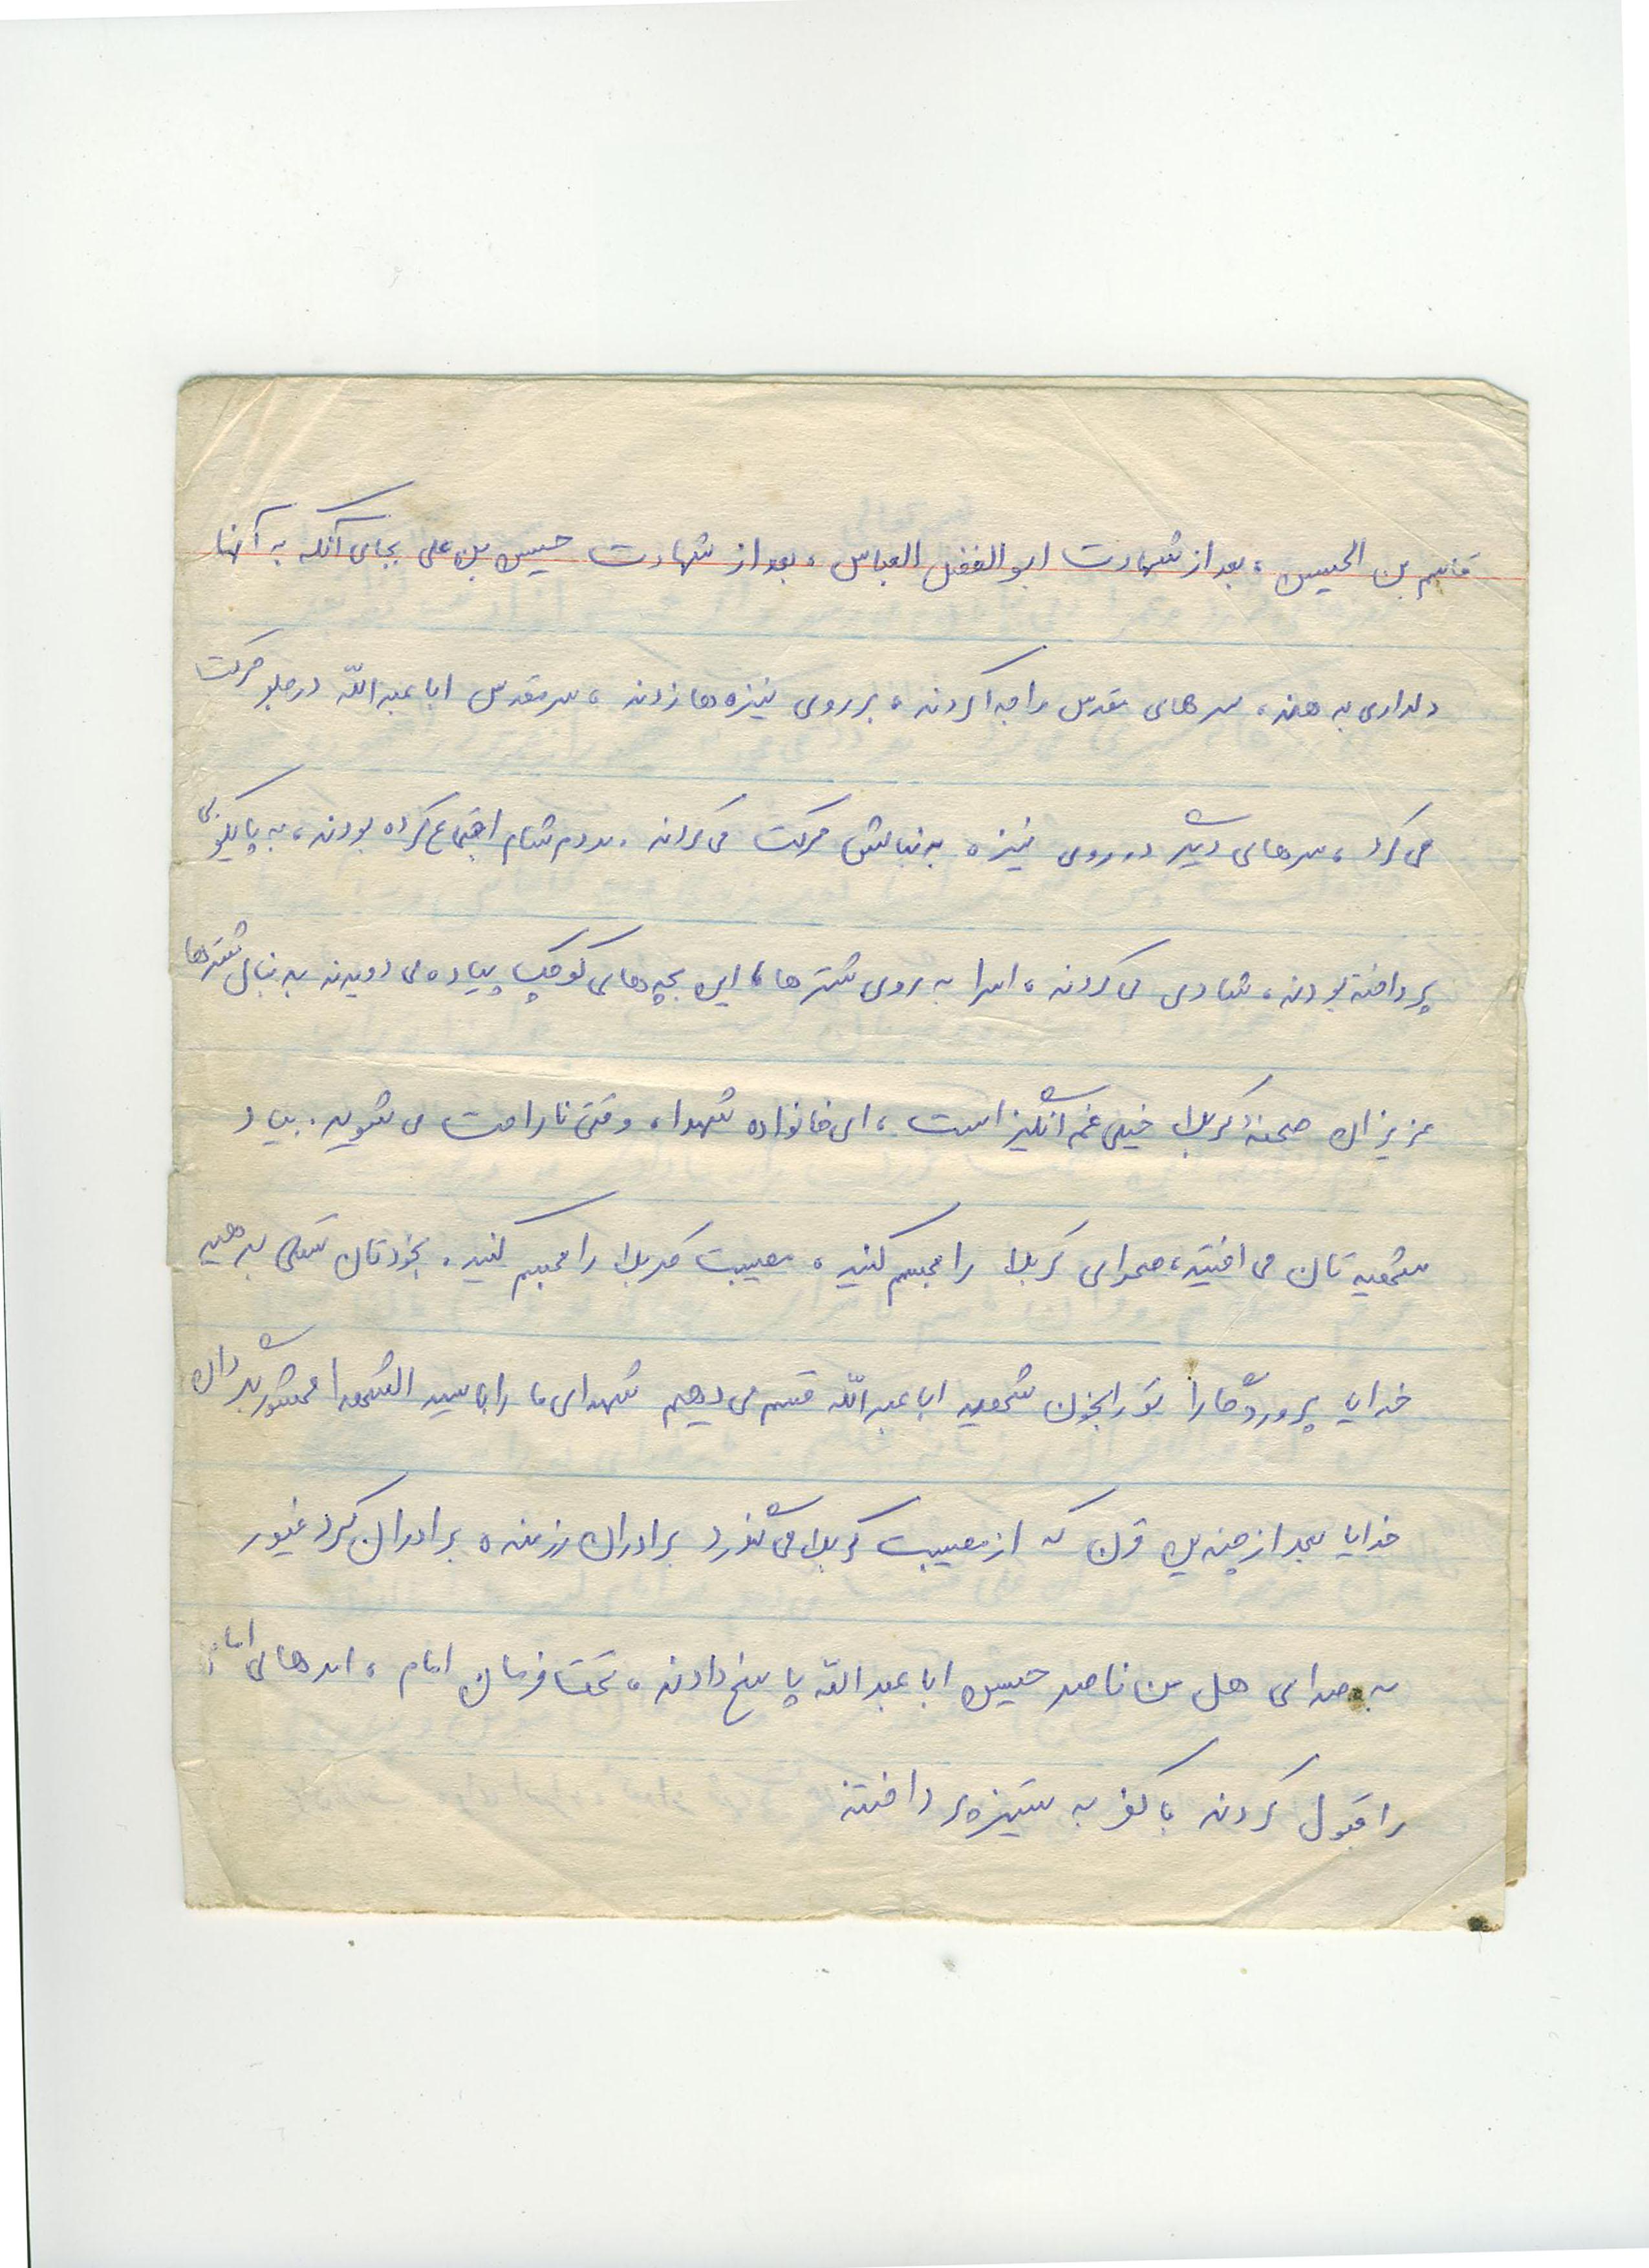 قاسم بن الحسین، بعد از شهادت ابوالفضل العباس، بعد از شهادت حسین بن علی بجای آنکه به آنها
دلداری بدهند، سرهای مقدس را جدا کردند، بر روی نیزه‌ها زدند، سر مقدس ابا عبدالله در جلو حرکت
می کرد، سرهای دیگر در روی نیزه بدنبالش حرکت می کردند. مردم شام اجتماع کرده بودند، به پایکوبی
پرداخته بودند، شادی می کردند، اسرا به روی شترها، این بچه‌های کوچک پیاده می دویدند به دنبال شترها
عزیزان صحنهٔ کربلا خیلی غم انگیز است، ای خانواده شهدا، وقتی ناراحت می شوید. بیاد
شهید تان می افتید، صحرای کربلا را مجسم کنید، مصیبت کربلا را مجسم کنید. بخودتان تسلی بدهید
خدایا پروردگارا تو را بخون شهید ابا عبدالله قسم می دهیم شهدای ما را با سید الشهدا محشور بگردان
خدایا بعد از چندین قرن که از مصیبت کربلا می گذرد برادران رزمنده برادران کرد غیور
به صدای هل من ناصر حسین ابا عبدالله پاسخ دادند، تحت فرمان امام، امرهای امام
را قبول کردند با کفر به ستیزه پرداختند